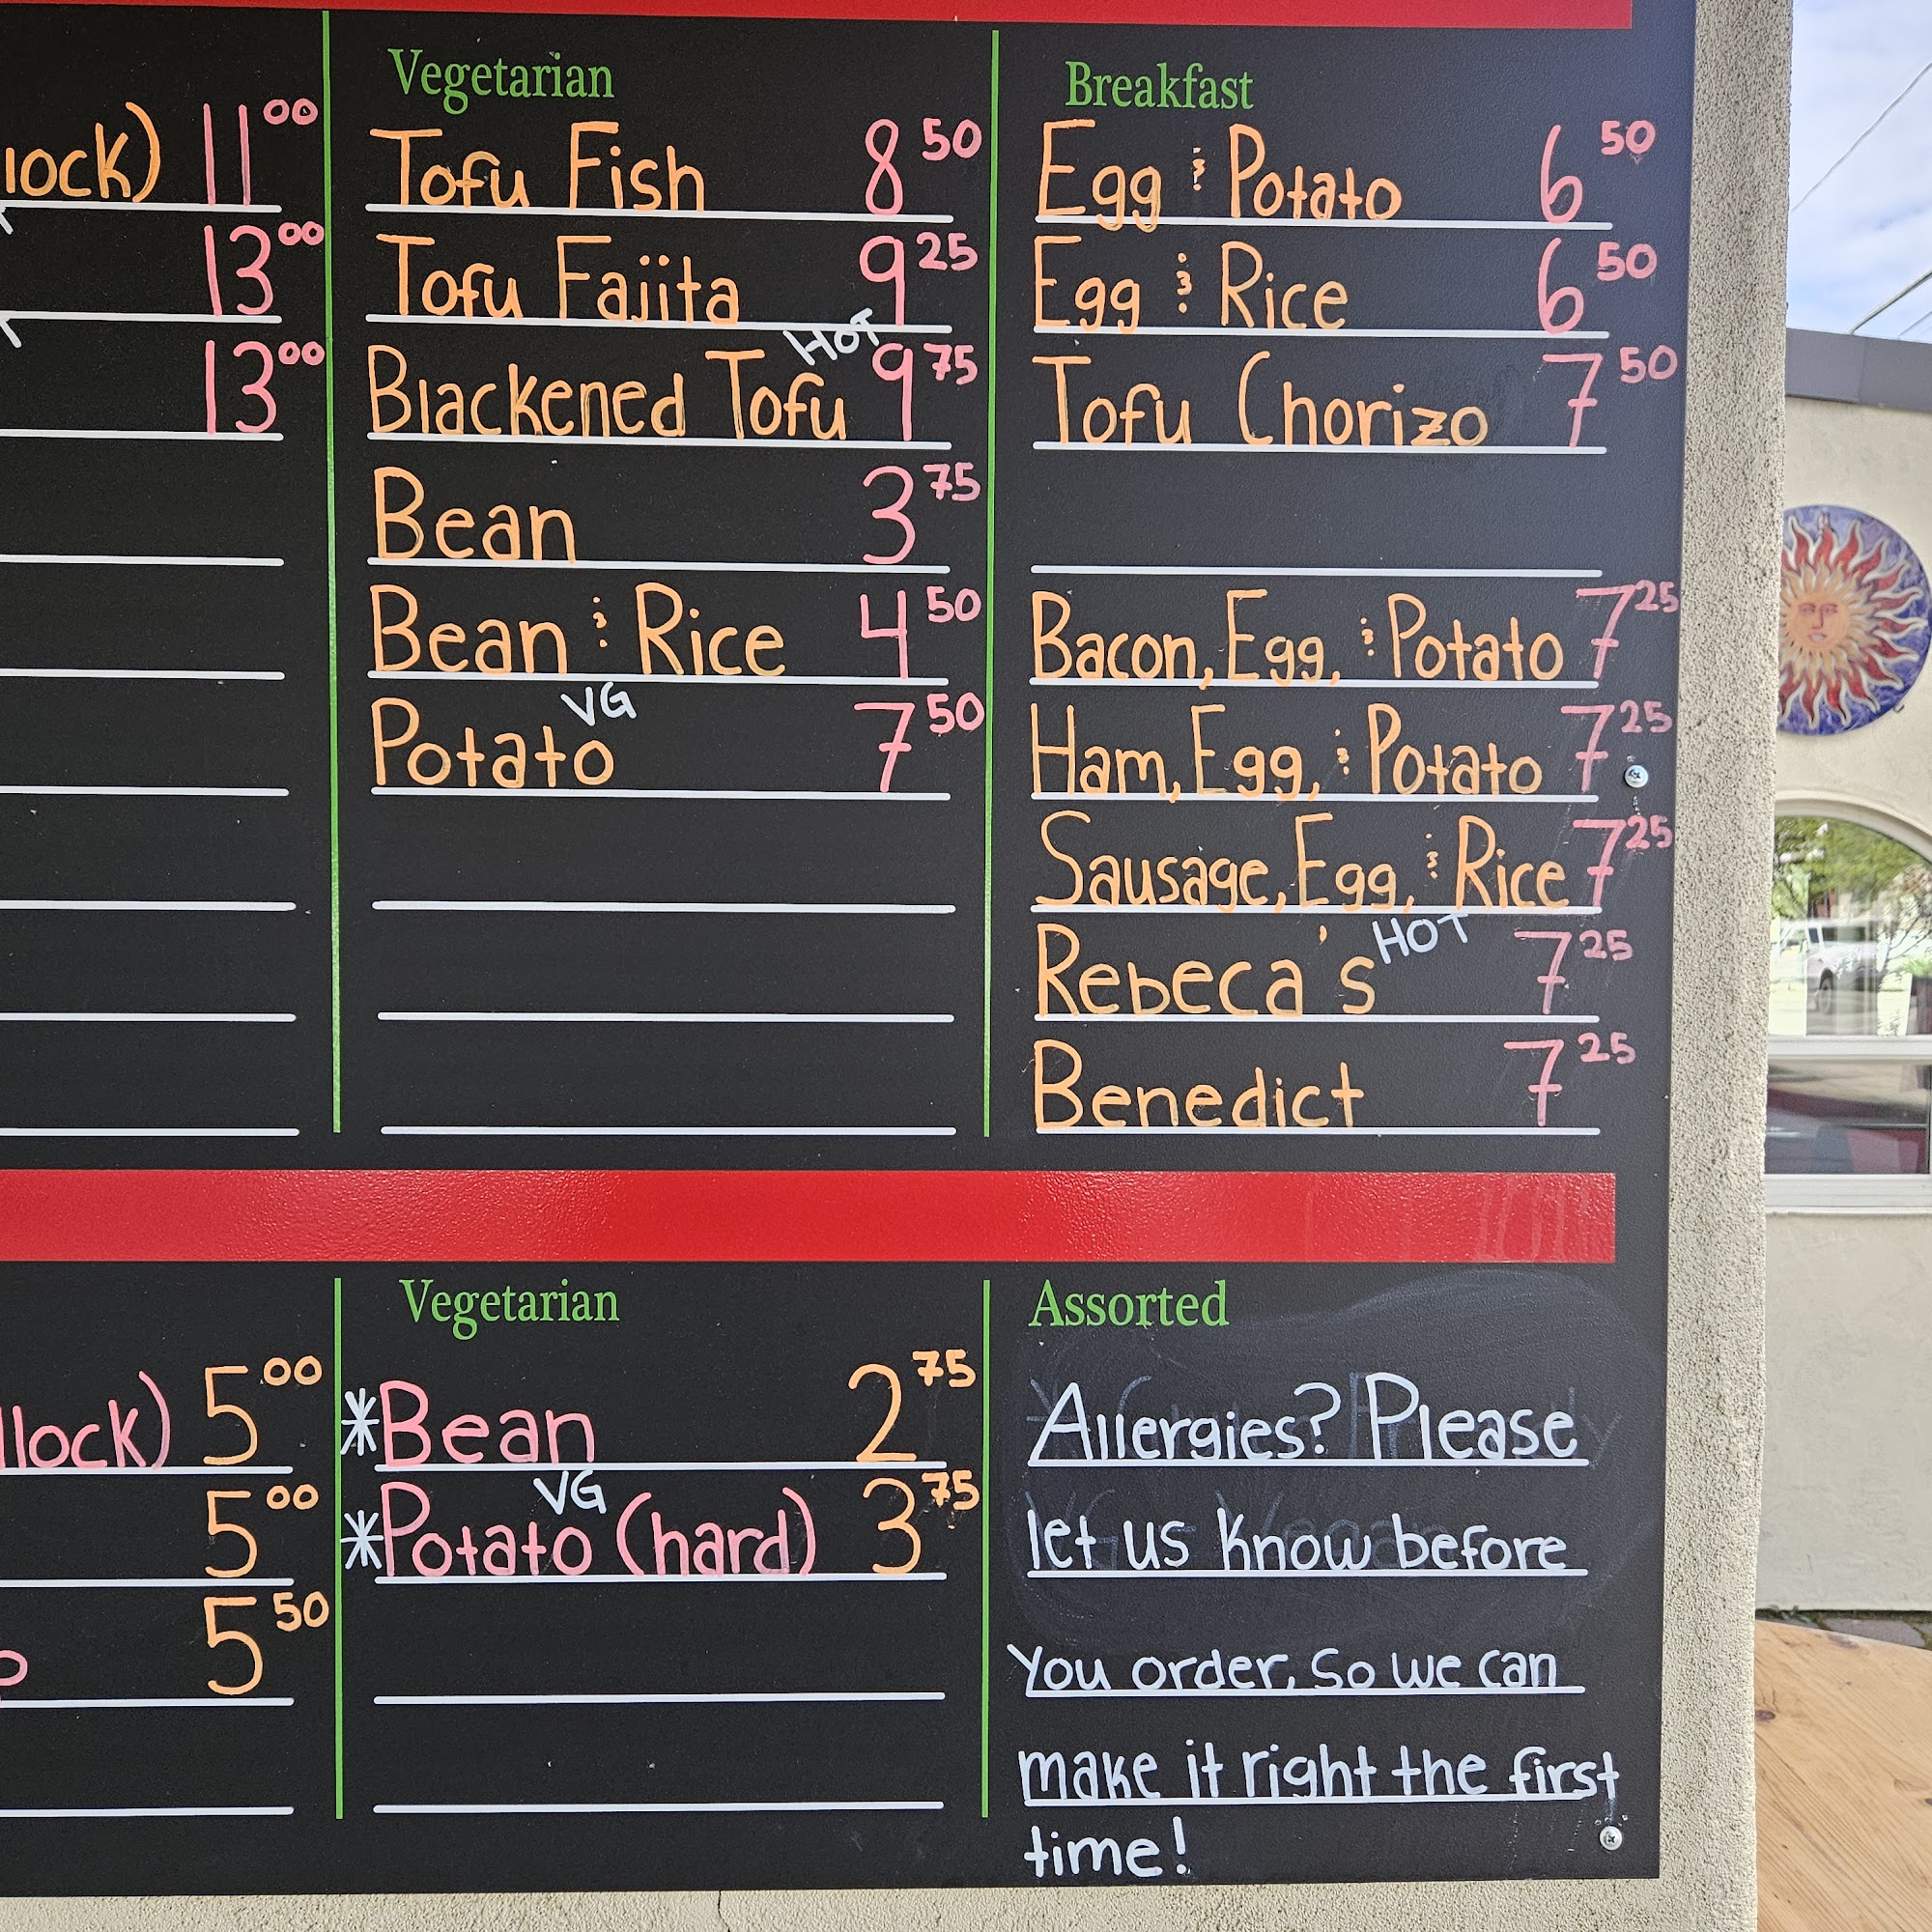 11 00
13 00
13 00
Vegetarian
Tofu Fish 8 50
Tofu Fajita 9 25
HOT
Blackened Tofu 9 75
Bean 3 75
Bean & Rice 4 50
VG
Potato 7 50
Breakfast
Egg & Potato 6 50
Egg & Rice 6 50
Tofu Chorizo 7 50
Bacon, Egg, & Potato 7 25
Ham, Egg, & Potato 7 25
Sausage, Egg, & Rice 7 25
Rebeca's HOT 7 25
Benedict 7 25
lock) 5 00
5 00
5 50
Vegetarian
*Bean 2 75
VG
*Potato (hard) 3 75
Assorted
Allergies? Please
let us know before
you order, so we can
make it right the first
time!